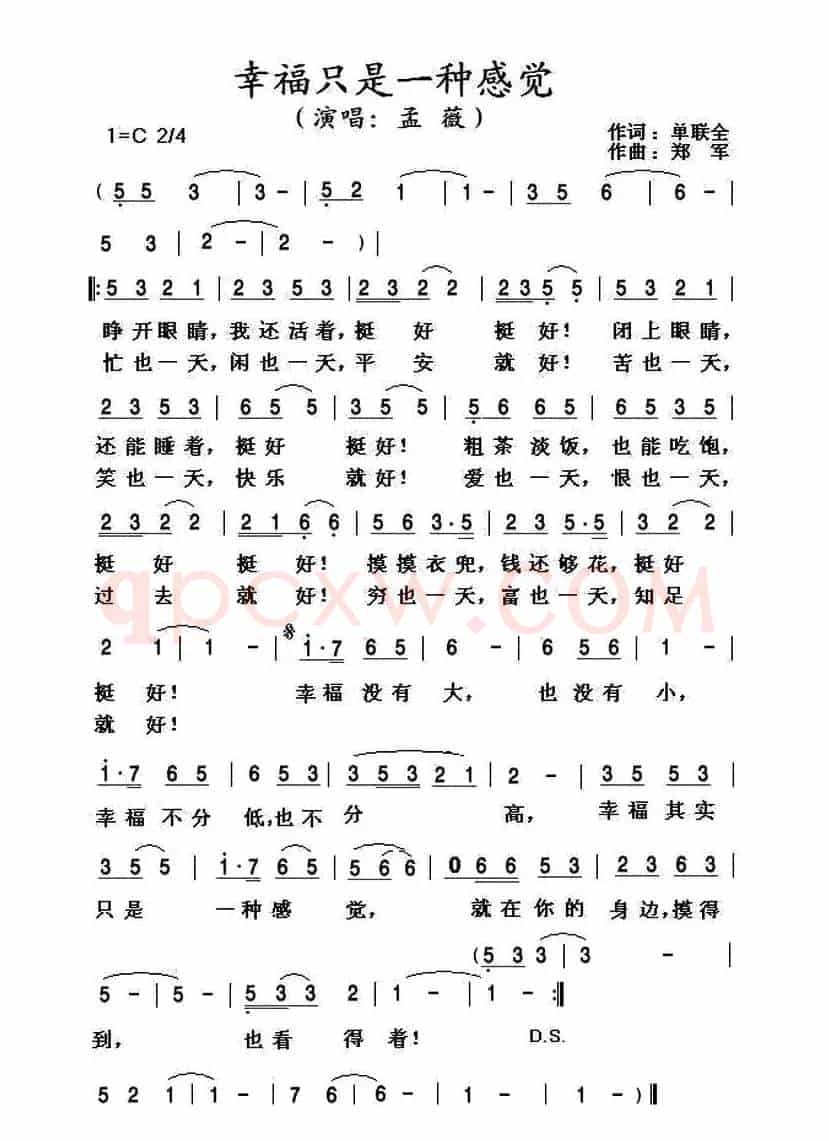 幸福只是一种感觉
（演唱：孟 薇）
1=C 2/4
作词：单联全
作曲：郑 军
( 5 5 3 | 3 - | 5 2 1 | 1 - | 3 5 6 | 6 - |
5 3 | 2 - | 2 - ) |
‖: 5 3 2 1 | 2 3 5 3 | 2 3 2 2 | 2 3 5 5 | 5 3 2 1 |
睁开眼睛，我还活着，挺 好 挺 好！ 闭上眼睛，
忙也一天，闲也一天，平 安 就 好！ 苦也一天，
2 3 5 3 | 6 5 5 | 3 5 5 | 5 6 6 5 | 6 5 3 5 |
还能睡着，挺好 挺好！ 粗茶淡饭，也能吃饱，
笑也一天，快乐 就好！ 爱也一天，恨也一天，
2 3 2 2 | 2 1 6 6 | 5 6 3 · 5 | 2 3 5 · 5 | 3 2 2 |
挺 好 挺 好！ 摸摸衣兜，钱还够花，挺好
过 去 就 好！ 穷也一天，富也一天，知足
qpcxw.com
2 1 | 1 - | i · 7 6 5 | 6 - | 6 5 6 | 1 - |
挺 好！ 幸福没有大， 也没有小，
就 好！
i · 7 6 5 | 6 5 3 | 3 5 3 2 1 | 2 - | 3 5 5 3 |
幸福不分 低，也不 分 高， 幸福其实
3 5 5 | i · 7 6 5 | 5 6 6 | 0 6 6 5 3 | 2 3 6 3 |
只是 一种感 觉， 就在你的 身边，摸得
( 5 3 3 | 3 - |
5 - | 5 - | 5 3 3 2 | 1 - | 1 - :‖
到， 也看 得 着！ D.S.
5 2 1 | 1 - | 7 6 | 6 - | 1 - | 1 - ) ‖